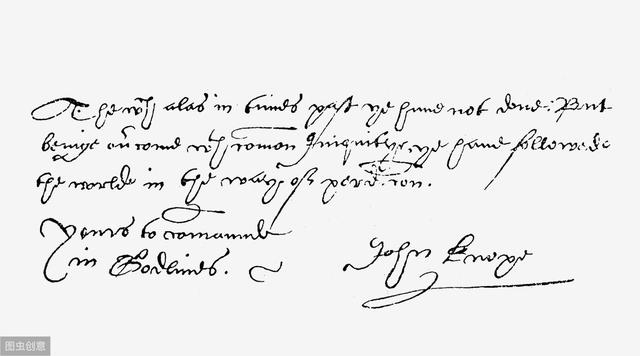 The wch alas in times past ye haue not done: But
beinge ou'come wth comon Iniquitye ye haue followede
the worlde in the waye of perdicion.
Yours to comaunde
in Godlines.
John Knoxe
图虫创意